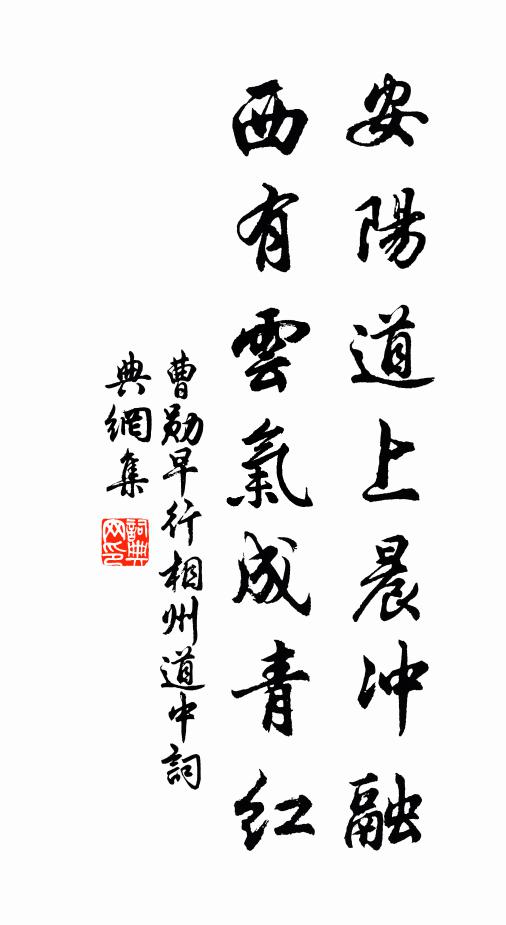 安陽道上晨冲融
西有雲氣成青紅
曹勛早行相州道中詞
典網集
詞典
网印